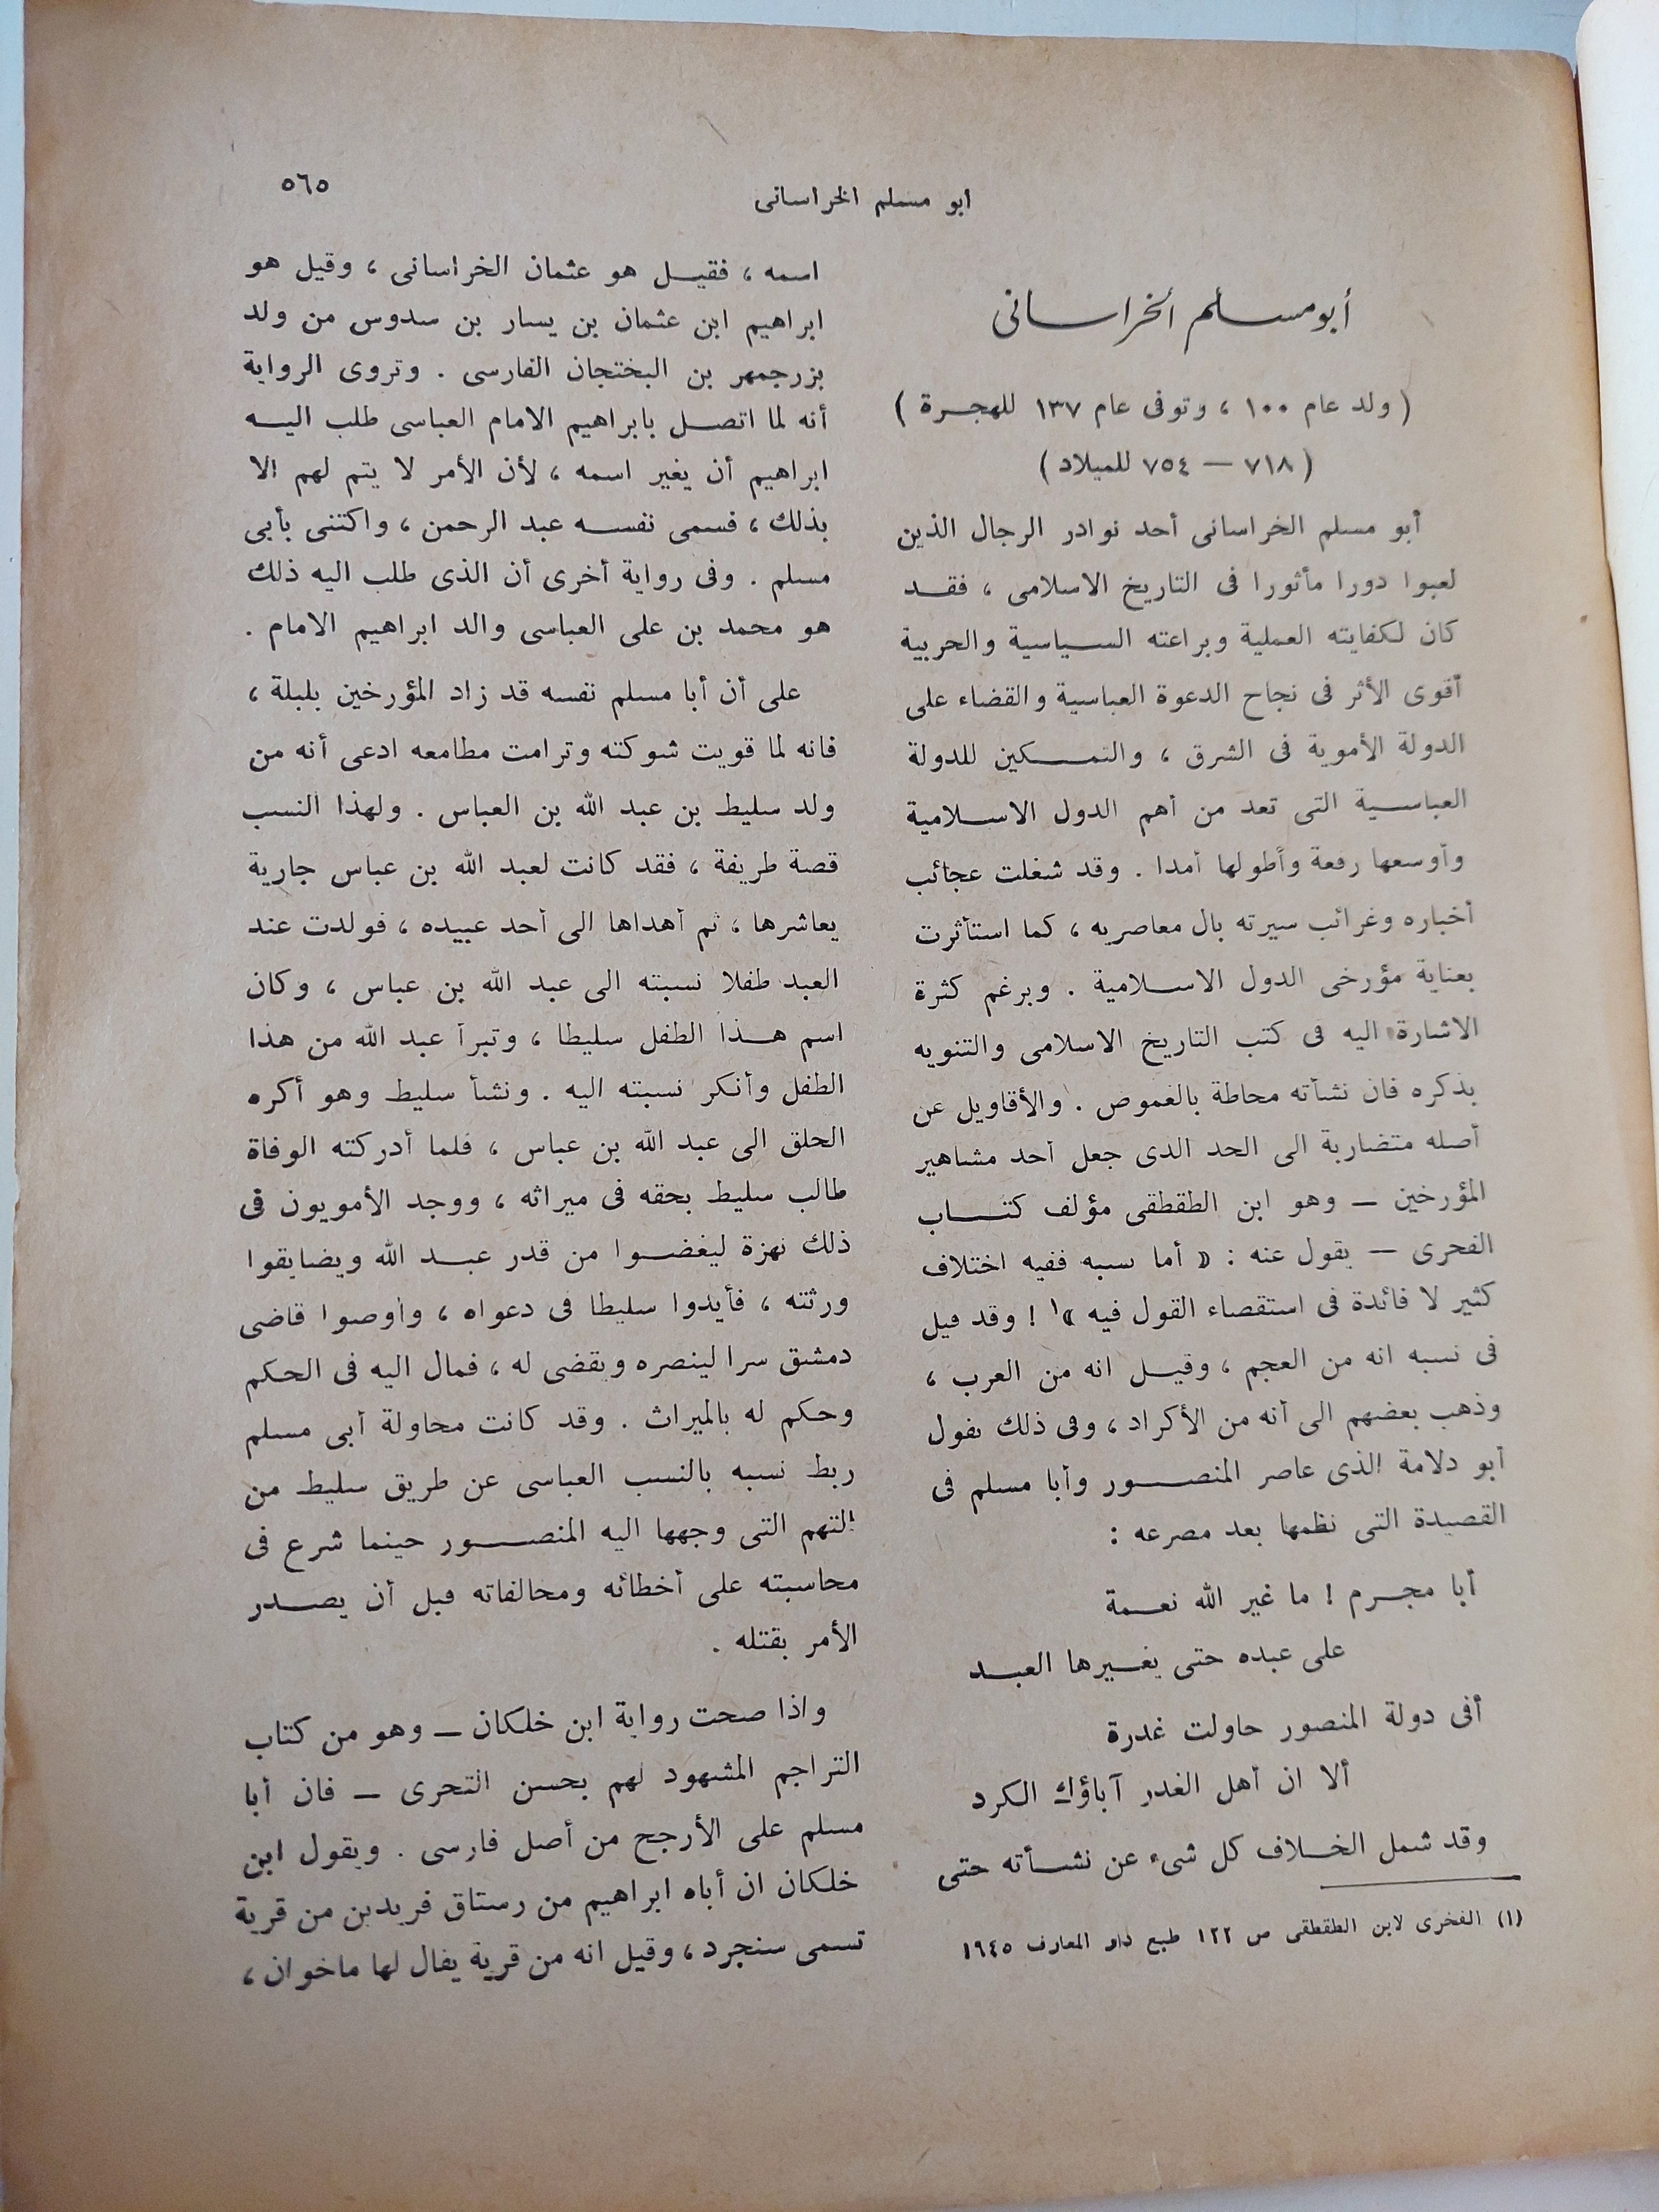 ابو مسلم الخراسانى
٥٦٥
أبو مسلم الخراسانى
( ولد عام ١٠٠ ، وتوفى عام ١٣٧ للهجرة )
( ٧١٨ — ٧٥٤ للميلاد )
أبو مسلم الخراسانى أحد نوادر الرجال الذين
لعبوا دورا مأثورا فى التاريخ الاسلامى ، فقد
كان لكفايته العملية وبراعته السياسية والحربية
أقوى الأثر فى نجاح الدعوة العباسية والقضاء على
الدولة الأموية فى الشرق ، والتمكين للدولة
العباسية التى تعد من أهم الدول الاسلامية
وأوسعها رفعة وأطولها أمدا . وقد شغلت عجائب
أخباره وغرائب سيرته بال معاصريه ، كما استأثرت
بعناية مؤرخى الدول الاسلامية . وبرغم كثرة
الاشارة اليه فى كتب التاريخ الاسلامى والتنويه
بذكره فان نشأته محاطة بالغموض . والأقاويل عن
أصله متضاربة الى الحد الذى جعل أحد مشاهير
المؤرخين — وهو ابن الطقطقى مؤلف كتاب
الفخرى — يقول عنه : « أما نسبه ففيه اختلاف
كثير لا فائدة فى استقصاء القول فيه »١ ! وقد قيل
فى نسبه انه من العجم ، وقيل انه من العرب ،
وذهب بعضهم الى أنه من الأكراد ، وفى ذلك يقول
أبو دلامة الذى عاصر المنصور وأبا مسلم فى
القصيدة التى نظمها بعد مصرعه :
أبا مجرم ! ما غير الله نعمة
على عبده حتى يغيرها العبد
أفى دولة المنصور حاولت غدرة
ألا ان أهل الغدر آباؤك الكرد
وقد شمل الخلاف كل شىء عن نشأته حتى
(١) الفخرى لابن الطقطقى ص ١٢٢ طبع دار المعارف ١٩٤٥
اسمه ، فقيل هو عثمان الخراسانى ، وقيل هو
ابراهيم ابن عثمان بن يسار بن سدوس من ولد
بزرجمهر بن البختجان الفارسى . وتروى الرواية
أنه لما اتصل بابراهيم الامام العباسى طلب اليه
ابراهيم أن يغير اسمه ، لأن الأمر لا يتم لهم الا
بذلك ، فسمى نفسه عبد الرحمن ، واكتنى بأبى
مسلم . وفى رواية أخرى أن الذى طلب اليه ذلك
هو محمد بن على العباسى والد ابراهيم الامام .
على أن أبا مسلم نفسه قد زاد المؤرخين بلبلة ،
فانه لما قويت شوكته وترامت مطامعه ادعى أنه من
ولد سليط بن عبد الله بن العباس . ولهذا النسب
قصة طريفة ، فقد كانت لعبد الله بن عباس جارية
يعاشرها ، ثم أهداها الى أحد عبيده ، فولدت عند
العبد طفلا نسبته الى عبد الله بن عباس ، وكان
اسم هذا الطفل سليطا ، وتبرأ عبد الله من هذا
الطفل وأنكر نسبته اليه . ونشأ سليط وهو أكره
الخلق الى عبد الله بن عباس ، فلما أدركته الوفاة
طالب سليط بحقه فى ميراثه ، ووجد الأمويون فى
ذلك نهزة ليغضوا من قدر عبد الله ويضايقوا
ورثته ، فأيدوا سليطا فى دعواه ، وأوصوا قاضى
دمشق سرا لينصره ويقضى له ، فمال اليه فى الحكم
وحكم له بالميراث . وقد كانت محاولة أبى مسلم
ربط نسبه بالنسب العباسى عن طريق سليط من
التهم التى وجهها اليه المنصور حينما شرع فى
محاسبته على أخطائه ومخالفاته قبل أن يصدر
الأمر بقتله .
واذا صحت رواية ابن خلكان — وهو من كتاب
التراجم المشهود لهم بحسن التحرى — فان أبا
مسلم على الأرجح من أصل فارسى . ويقول ابن
خلكان ان أباه ابراهيم من رستاق فريدين من قرية
تسمى سنجرد ، وقيل انه من قرية يقال لها ماخوان ،